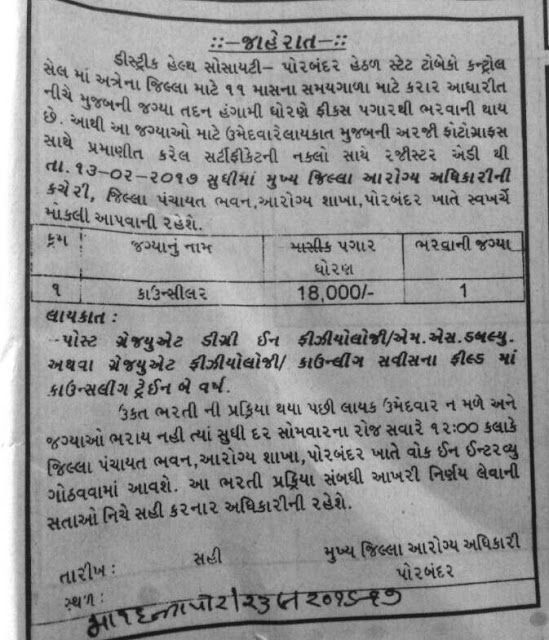 ::-જાહેરાત-::
ડીસ્ટ્રીક હેલ્થ સોસાયટી- પોરબંદર હેઠળ સ્ટેટ ટોબેકો કન્ટ્રોલ
સેલ માં અત્રેના જિલ્લા માટે ૧૧ માસના સમયગાળા માટે કરાર આધારીત
નીચે મુજબની જગ્યા તદન હંગામી ધોરણે ફીકસ પગારથી ભરવાની થાય
છે. આથી આ જગ્યાઓ માટે ઉમેદવારેલાયકાત મુજબની અરજી ફોટોગ્રાફસ
સાથે પ્રમાણીત કરેલ સર્ટીફીકેટની નકલો સાથે રજીસ્ટર એડી થી
તા. ૧૩-૦૨-૨૦૧૭ સુધીમાં મુખ્ય જિલ્લા આરોગ્ય અધિકારીની
કચેરી, જિલ્લા પંચાયત ભવન,આરોગ્ય શાખા,પોરબંદર ખાતે સ્વખર્ચે
મોકલી આપવાની રહેશે.
ક્રમ જગ્યાનું નામ માસીક પગાર ધોરણ ભરવાની જગ્યા
૧ કાઉન્સીલર 18,000/- 1
લાયકાત :
-પોસ્ટ ગ્રેજયુએટ ડીગ્રી ઈન ફીઝીયોલોજી/એમ.એસ.ડબલ્યુ.
અથવા ગ્રેજયુએટ ફીઝીયોલોજી/ કાઉન્લીંગ સવીસના ફીલ્ડ માં
કાઉન્સલીગ ટ્રેઈન બે વર્ષ.
ઉકત ભરતી ની પ્રક્રિયા થયા પછી લાયક ઉમેદવાર ન મળે અને
જગ્યાઓ ભરાય નહી ત્યાં સુધી દર સોમવારના રોજ સવારે ૧૨:૦૦ કલાકે
જિલ્લા પંચાયત ભવન,આરોગ્ય શાખા,પોરબંદર ખાતે વોક ઈન ઈન્ટરવ્યુ
ગોઠવવામાં આવશે. આ ભરતી પ્રક્રિયા સંબંધી આખરી નિર્ણય લેવાની
સતાઓ નિચે સહી કરનાર અધિકારીની રહેશે.
તારીખ : સહી મુખ્ય જિલ્લા આરોગ્ય અધિકારી
સ્થળ : પોરબંદર